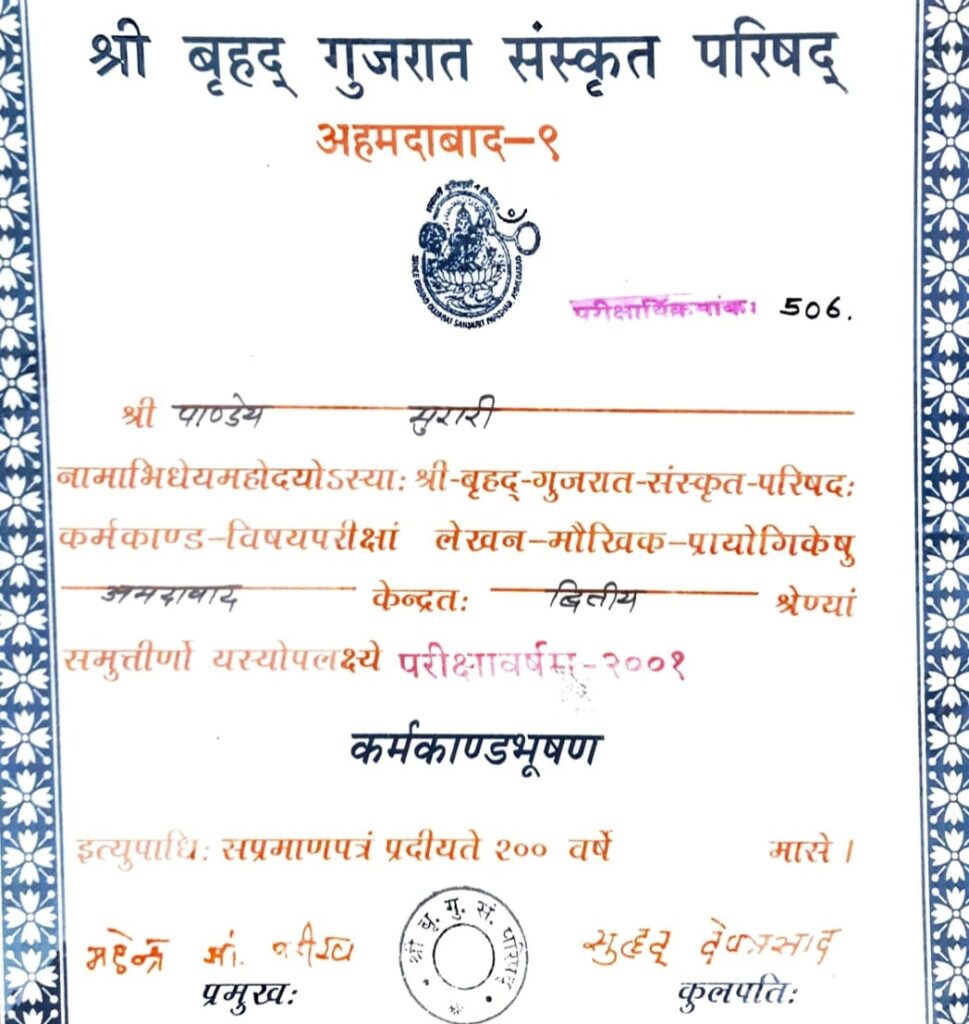 श्री बृहद् गुजरात संस्कृत परिषद्
अहमदाबाद-९
परीक्षार्थिक्रमांकः 506.
श्री पाण्डेय मुरारी
नामाभिधेयमहोदयोऽस्याः श्री-बृहद्-गुजरात-संस्कृत-परिषदः
कर्मकाण्ड-विषयपरीक्षां लेखन-मौखिक-प्रायोगिकेषु
अमदावाद केन्द्रतः द्वितीय श्रेण्यां
समुत्तीर्णो यस्योपलक्ष्ये परीक्षावर्षम्-२००१
कर्मकाण्डभूषण
इत्युपाधिः सप्रमाणपत्रं प्रदीयते २०० वर्षे मासे ।
श्री बृ. गु. सं. परिषद्
महेन्द्र सुहृद् देवप्रसाद
प्रमुखः कुलपतिः